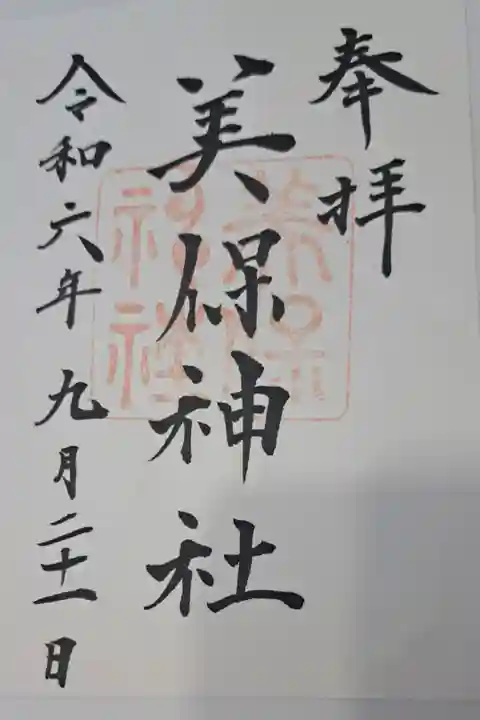 奉拝
美保神社
美保
神社
令和六年九月二十一日